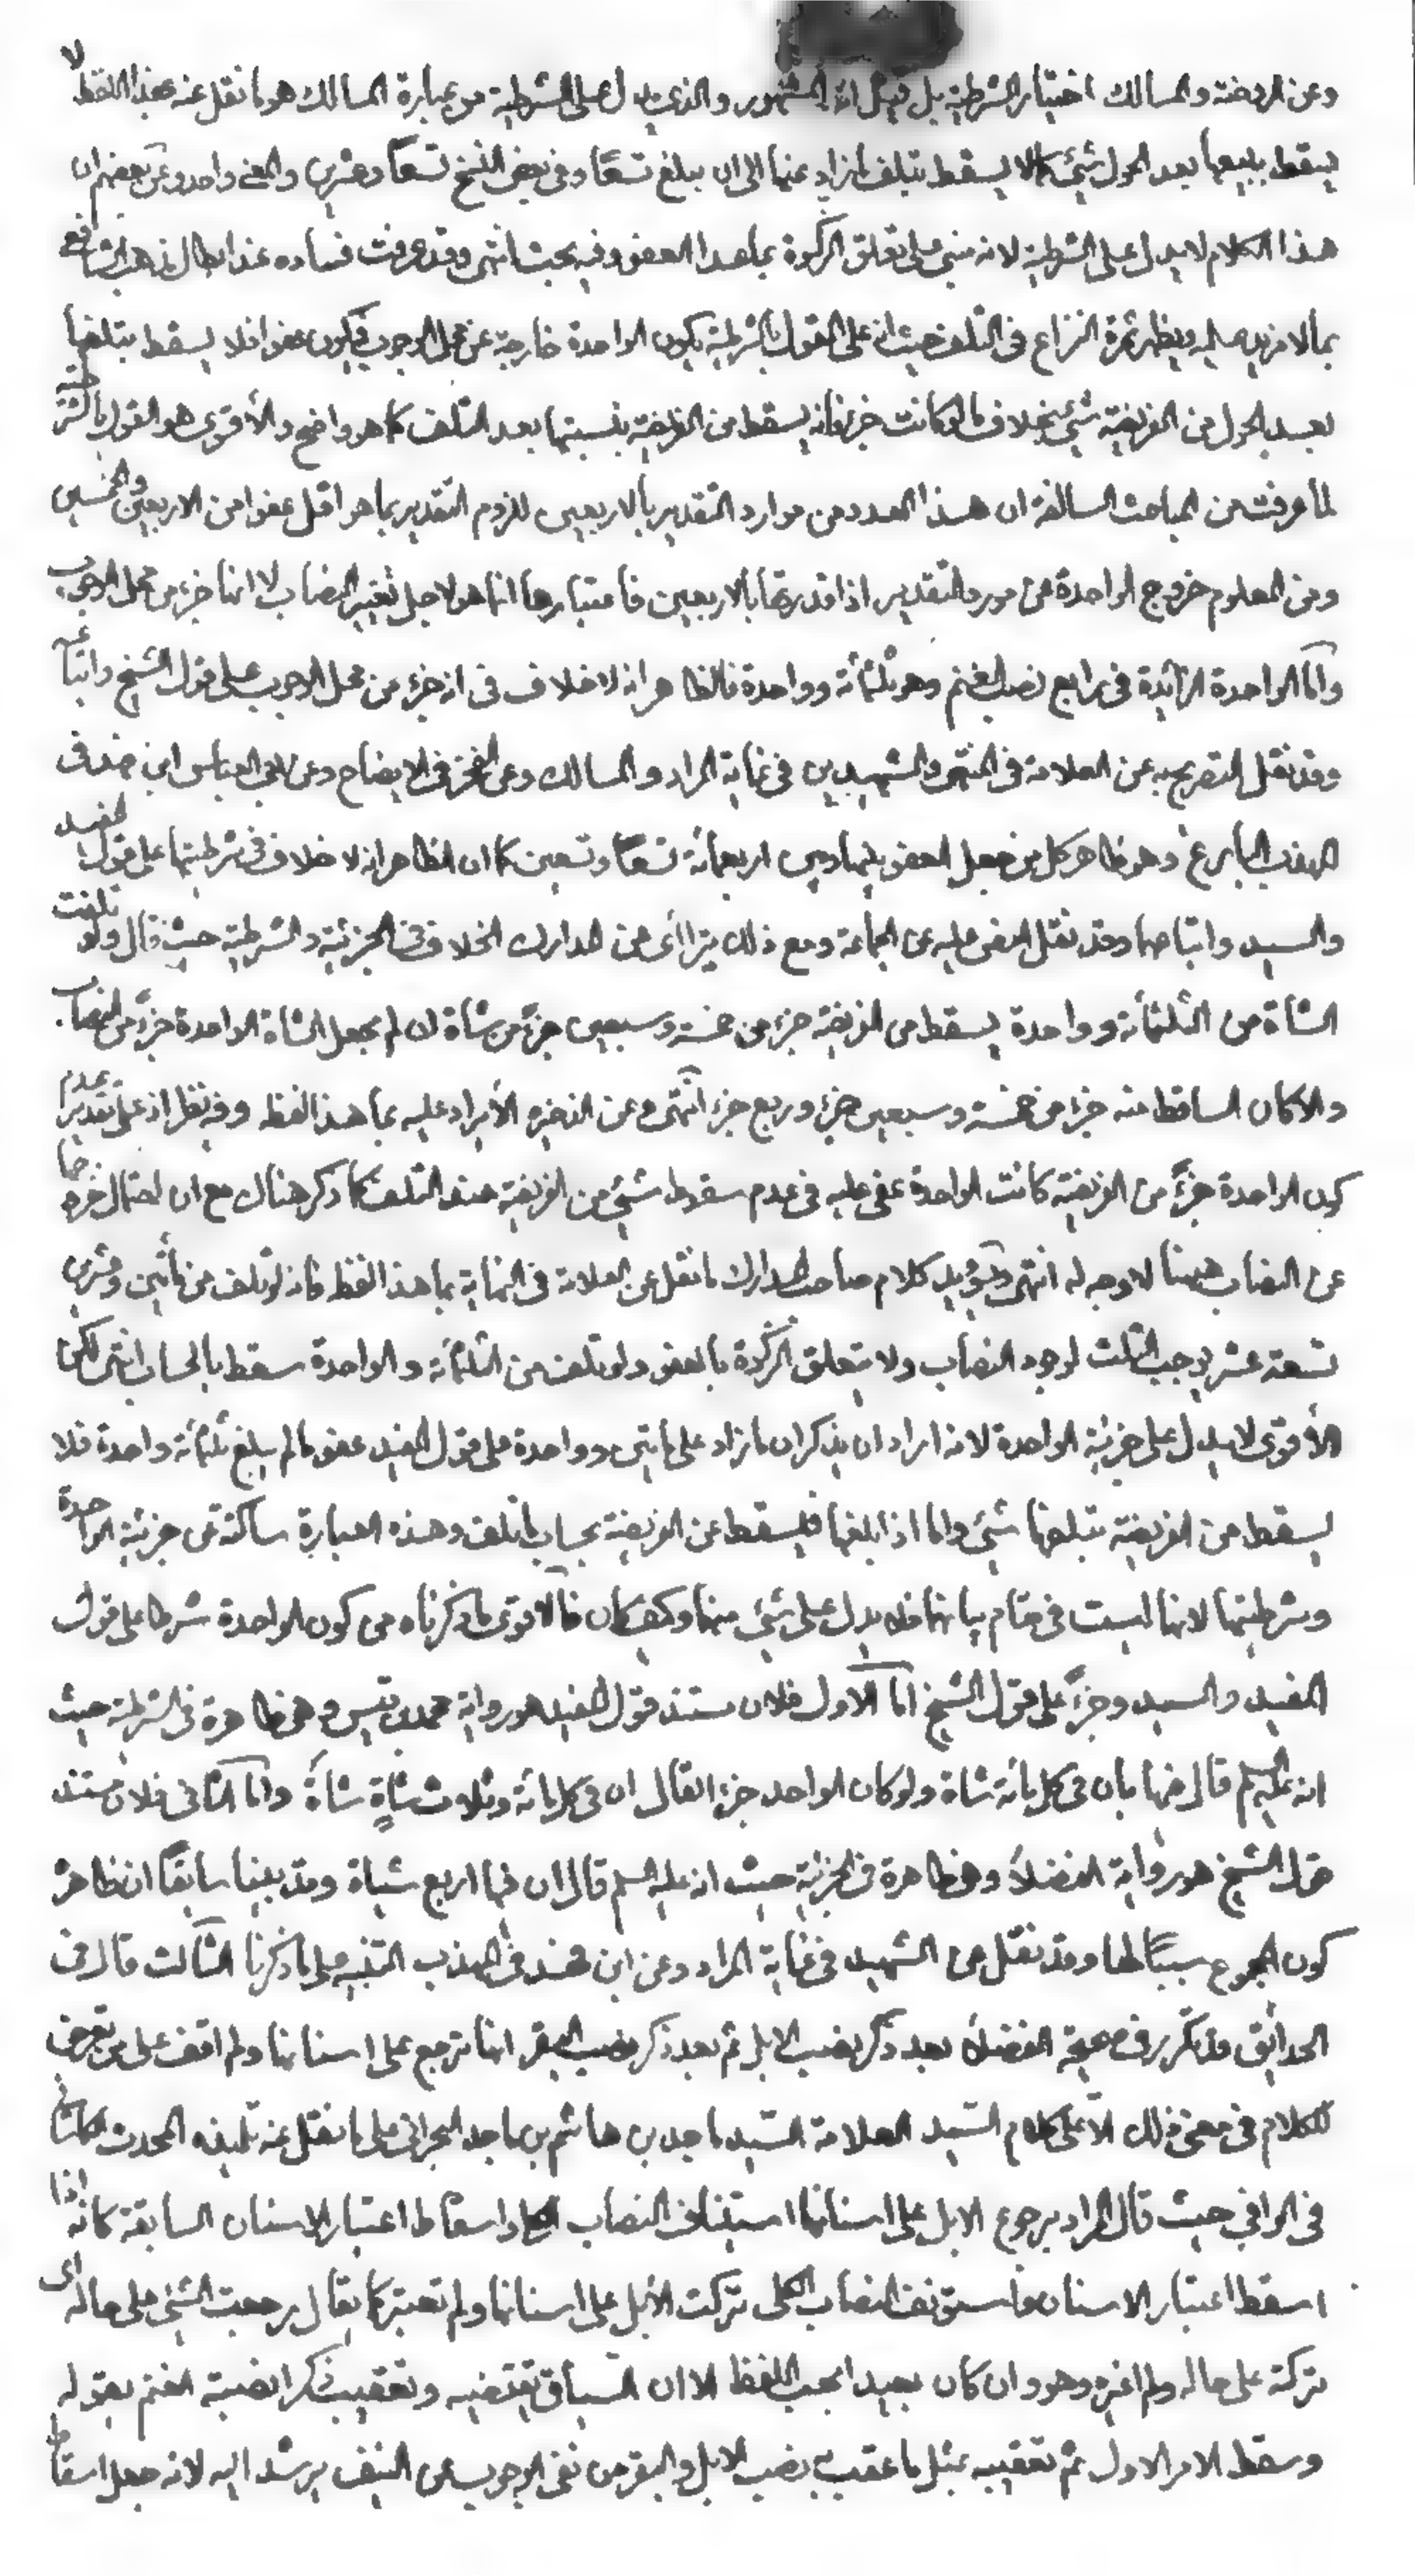 وعن الروضة والمسالك اختيار الشرطية بل قيل انه المشهور والذي يدل على الشرطية من عبارة المسالك هو ما نقل عنه بهذا اللفظ لا
يسقط بتلفها بعد الحول شيء كما لا يسقط بتلف ما زاد عنها الى ان يبلغ تسعا وفي بعض النسخ تسعاً وعشرين والمعنى واحد وعن بعضهم ان
هذا الكلام لا يدل على الشرطية لانه مبني على تعلق الزكوة بما عدا العفو وفيه بحث انتهى وقد عرفت فساده عند ابطال مذهب الشافعي
بما لا مزيد عليه ويظهر ثمرة النزاع في التلف حيث انه على القول بالشرطية يكون الواحدة خارجة عن محل الوجوب فيكون عفوا فلا يسقط بتلفها
بعد الحول من الفريضة شيء بخلاف ما لو كانت جزء فانه يسقط من الفريضة بنسبتها بعد التلف كما هو واضح والأقوى هو القول بالشرطية
لما عرفت من المباحث السالفة ان هذا العدد من موارد التقدير بالاربعين للزوم التقدير بما هو اقل عفوا من الاربعين والخمسين
ومن المعلوم خروج الواحدة عن مورد التقدير اذا قدرتها بالاربعين فاعتبارها انما هو لاجل تغيير النصاب لا انها جزء من محل الوجوب
وامّا الواحدة الزائدة في رابع نصب الغنم وهو ثلثمائة وواحدة فالظاهر انه لا خلاف في انه جزء من محل الوجوب على قول الشيخ واتباعه
وقد نقل التصريح به عن العلامة في المنتهى والشهيدين في غاية المراد والمسالك وعن الفخر في الايضاح وعن ابي العباس ابن فهد في
المهذب البارع وهو ظاهر كل من جعل العفو بينها وبين اربعمائة تسعاً وتسعين كما ان الظاهر انه لا خلاف في شرطيتها على قول المفيد
والسيد واتباعهما وقد نقل النص عليه عن الجماعة ومع ذلك يترأى من المدارك الخلاف في الجزئية والشرطية حيث قال ولو تلفت
الشاة من الثلثمائة وواحدة يسقط من الفريضة جزء من خمسة وسبعين جزءً من شاة ان لم يجعل الشاة الواحدة جزءً من النصاب
والا كان الساقط منه جزء من خمسة وسبعين جزء وربع جزء انتهى وعن الذخيرة الأيراد عليه بما هذا لفظه وفيه نظر اذ على تقدير عدم
كون الواحدة جزءً من الفريضة كانت الواحدة عفى عليه في عدم سقوط شيء من الفريضة عند التلف كما ذكر هناك مع ان احتمال خروجها
عن النصاب هيهنا لا وجه له انتهى ويؤيد كلام صاحب المدارك ما نقل عن العلامة في النهاية بما هذا لفظه فانه لو تلف من مأتين وعشرين
تسعة عشر يوجب الثلث لوجود النصاب ولا يتعلق الزكوة بالعفو ولو تلف من الثلثمائة والواحدة سقط بالحساب انتهى لكن
الأقوى لا يدل على جزئية الواحدة لانه اراد ان يذكر ان ما زاد على مأتين وواحدة على قول المفيد عفو ما لم يبلغ ثلثمائة واحدة فلا
يسقط من الفريضة بتلفها شيء واما اذا بلغها فليسقط عن الفريضة بحساب ما تلف وهذه العبارة ساكتة عن جزئية الواحدة
وشرطيتها لانها ليست في مقام بيانها فلا يدل على شيء منهما وكيف كان فالاقوى ما ذكرناه من كون الواحدة شرطا على قول
المفيد والسيد وجزءً على قول الشيخ امّا الاول فلان مستند قول المفيد هو رواية محمد بن قيس وهي ظاهرة في الشرطية حيث
انه عليه السلم قال فيها بأن في كل مائة شاة ولو كان الواحد جزء لقال ان في كل مائة وثلاث شاةٍ شاةً وامّا الثاني فلان مستند
قول الشيخ هو رواية الفضلاء وهي ظاهرة في الجزئية حيث انه عليه السلم قال ان فيها اربع شياة وقد بينا سابقاً ان ظاهر
كون المجموع سبباً لها وقد نقل عن الشهيد في غاية المراد وعن ابن فهد في المهذب التنبيه على ما ذكرنا الثالث قال في
الحدائق قد تكرر في صحيحة الفضلاء بعد ذكر نصب الابل ثم بعد ذكر نصب البقر انها ترجع على اسنانها ولم اقف على من تعرض
للكلام في معنى ذلك الّا على كلام السيد العلامة السيد ماجد بن هاشم بن ماجد البحراني على ما نقل عنه تلميذه المحدث الكاشاني
في الوافي حيث قال المراد برجوع الابل على اسنانها استيناف النصاب الكلي واسقاط اعتبار الاسنان السابقة كانه اذا
اسقط اعتبار الاسنان واستونف النصاب الكلي تركت الأبل على اسنانها ولم تعتبر كما يقال رجعت الشيء على حاله اى
تركته على حاله ولم اغيره وهو وان كان بعيدا بحسب اللفظ الا ان السياق يقتضيه وتعقيب ذكر انصبة الغنم بقوله
وسقط الامر الاول ثم تعقيبه بمثل ما عقب به نصب الابل والبقر من نفي الوجوب عن النيف يرشد اليه لانه جعل اسقاط